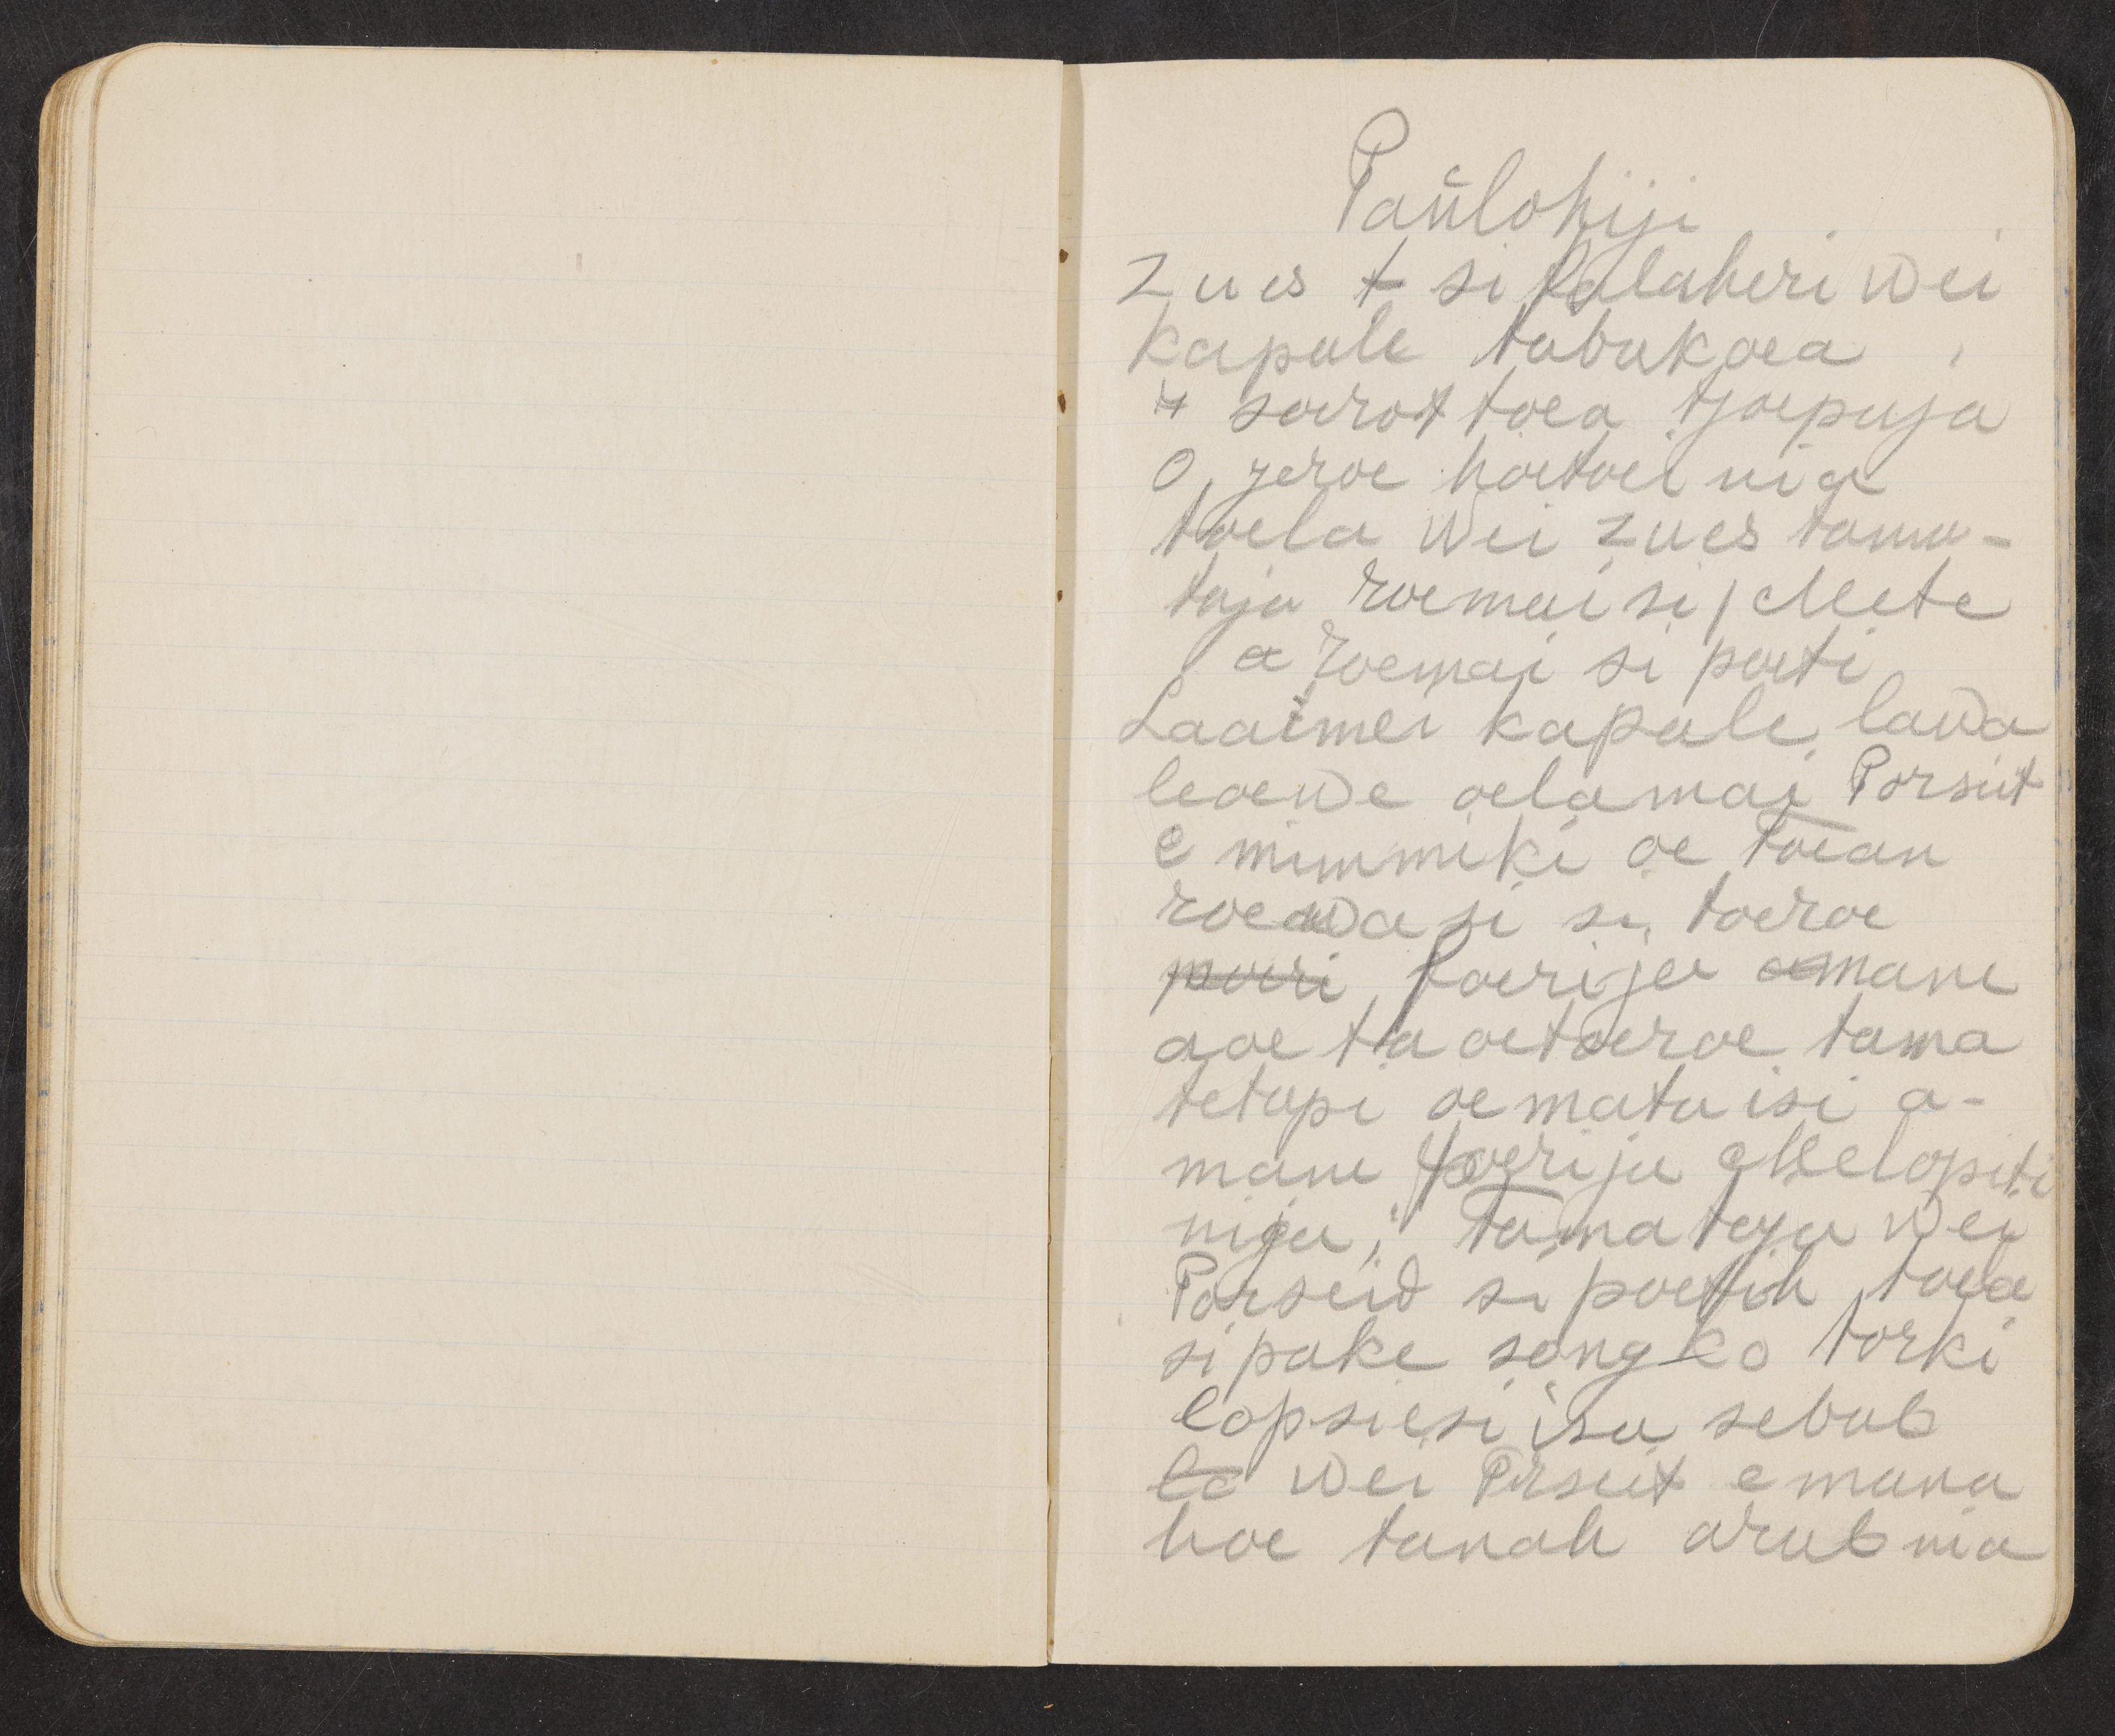 Paŭlohiji
Zues t si falaheri wei
kapale tabakoea
4 soerot toea tjoepaja
O, zeroe hoetoei nia
toela wei zues tama-
taja roemai si, Mete
a roemai si poeti
Laaimei kapale lawa
leoewe oelamai Porsiit
e mimmiki oe toean
roeawa si si toeroe
poeri foerija amane
aoe ta oetoeroe tama
tetapi oe mata isi a-
mane foerija Melopiti
nija, Tamataja wei
Porseid si poetih toea
si pake songko torki
lopsiesi isa sebab
la wei Prseit e mana
hoe tanah arab nia